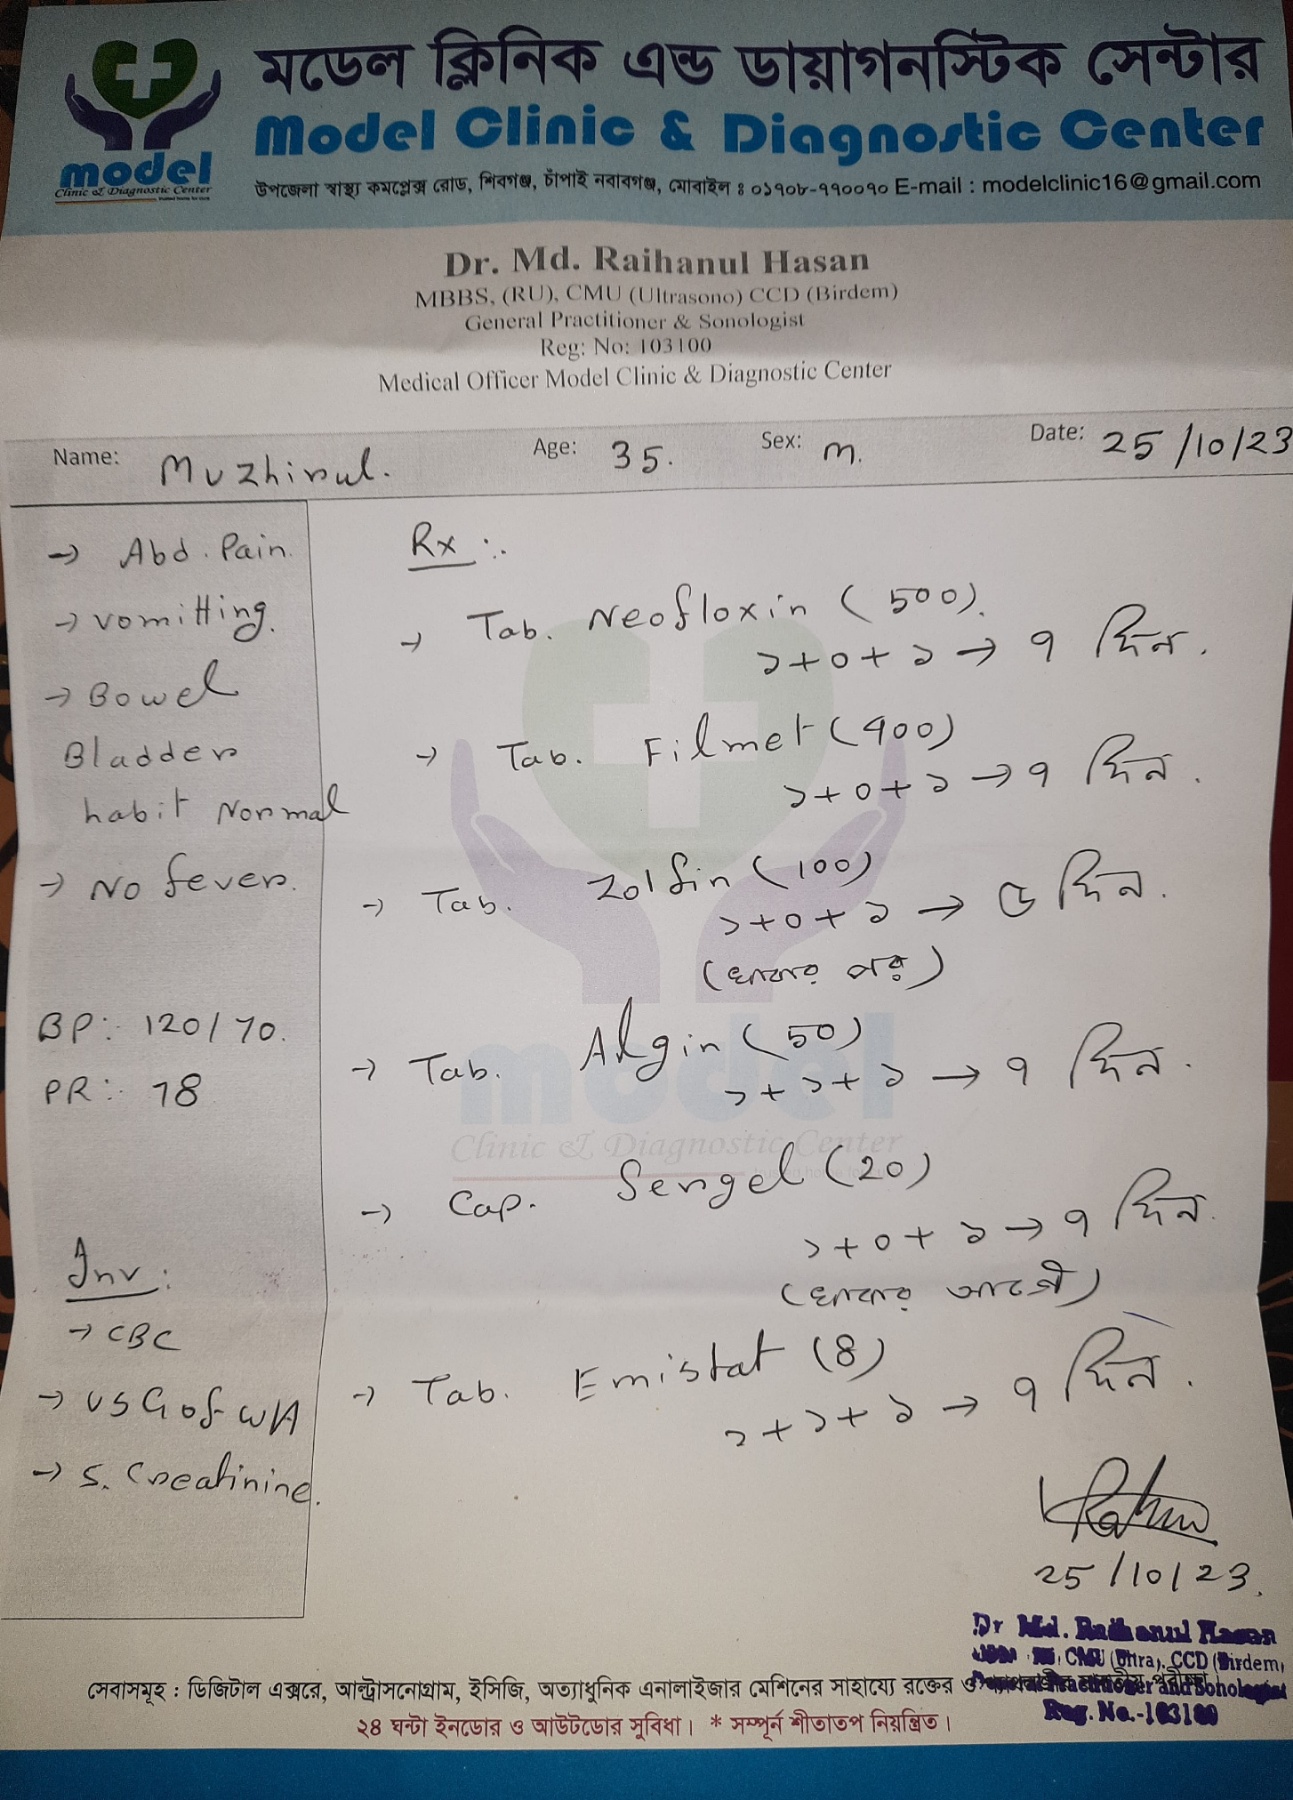 মডেল ক্লিনিক এন্ড ডায়াগনস্টিক সেন্টার
Model Clinic & Diagnostic Center
model
Clinic & Diagnostic Center
উপজেলা স্বাস্থ্য কমপ্লেক্স রোড, শিবগঞ্জ, চাঁপাই নবাবগঞ্জ, মোবাইল ঃ ০১৭০৮-৭৭০০৭০ E-mail : modelclinic16@gmail.com
Dr. Md. Raihanul Hasan
MBBS, (RU), CMU (Ultrasono) CCD (Birdem)
General Practitioner & Sonologist
Reg: No: 103100
Medical Officer Model Clinic & Diagnostic Center
Name: Muzhirul. Age: 35. Sex: M. Date: 25/10/23
→ Abd. Pain.
→ vomitting.
→ Bowel
Bladder
habit Normal
→ No fever.
BP:- 120/70.
PR:- 78
Inv:
→ CBC
→ USG of W/A
→ S. Creatinine.
Rx :.
→ Tab. Neofloxin (500).
১+০+১ → ৭ দিন.
→ Tab. Filmet (400)
১+০+১ → ৭ দিন.
→ Tab. Zolfin (100)
১+০+১ → ৫ দিন.
(খাবার পর)
→ Tab. Algin (50)
১+১+১ → ৭ দিন.
→ Cap. Sergel (20)
১+০+১ → ৭ দিন.
(খাবার আগে)
→ Tab. Emistat (8)
১+১+১ → ৭ দিন.
model
Clinic & Diagnostic Center
25/10/23.
Dr Md. Raihanul Hasan
CMU (Ultra), CCD (Birdem,
Reg. No.-103100
সেবাসমূহ : ডিজিটাল এক্সরে, আল্ট্রাসনোগ্রাম, ইসিজি, অত্যাধুনিক এনালাইজার মেশিনের সাহায্যে রক্তের ও
২৪ ঘন্টা ইনডোর ও আউটডোর সুবিধা। * সম্পূর্ন শীতাতপ নিয়ন্ত্রিত।